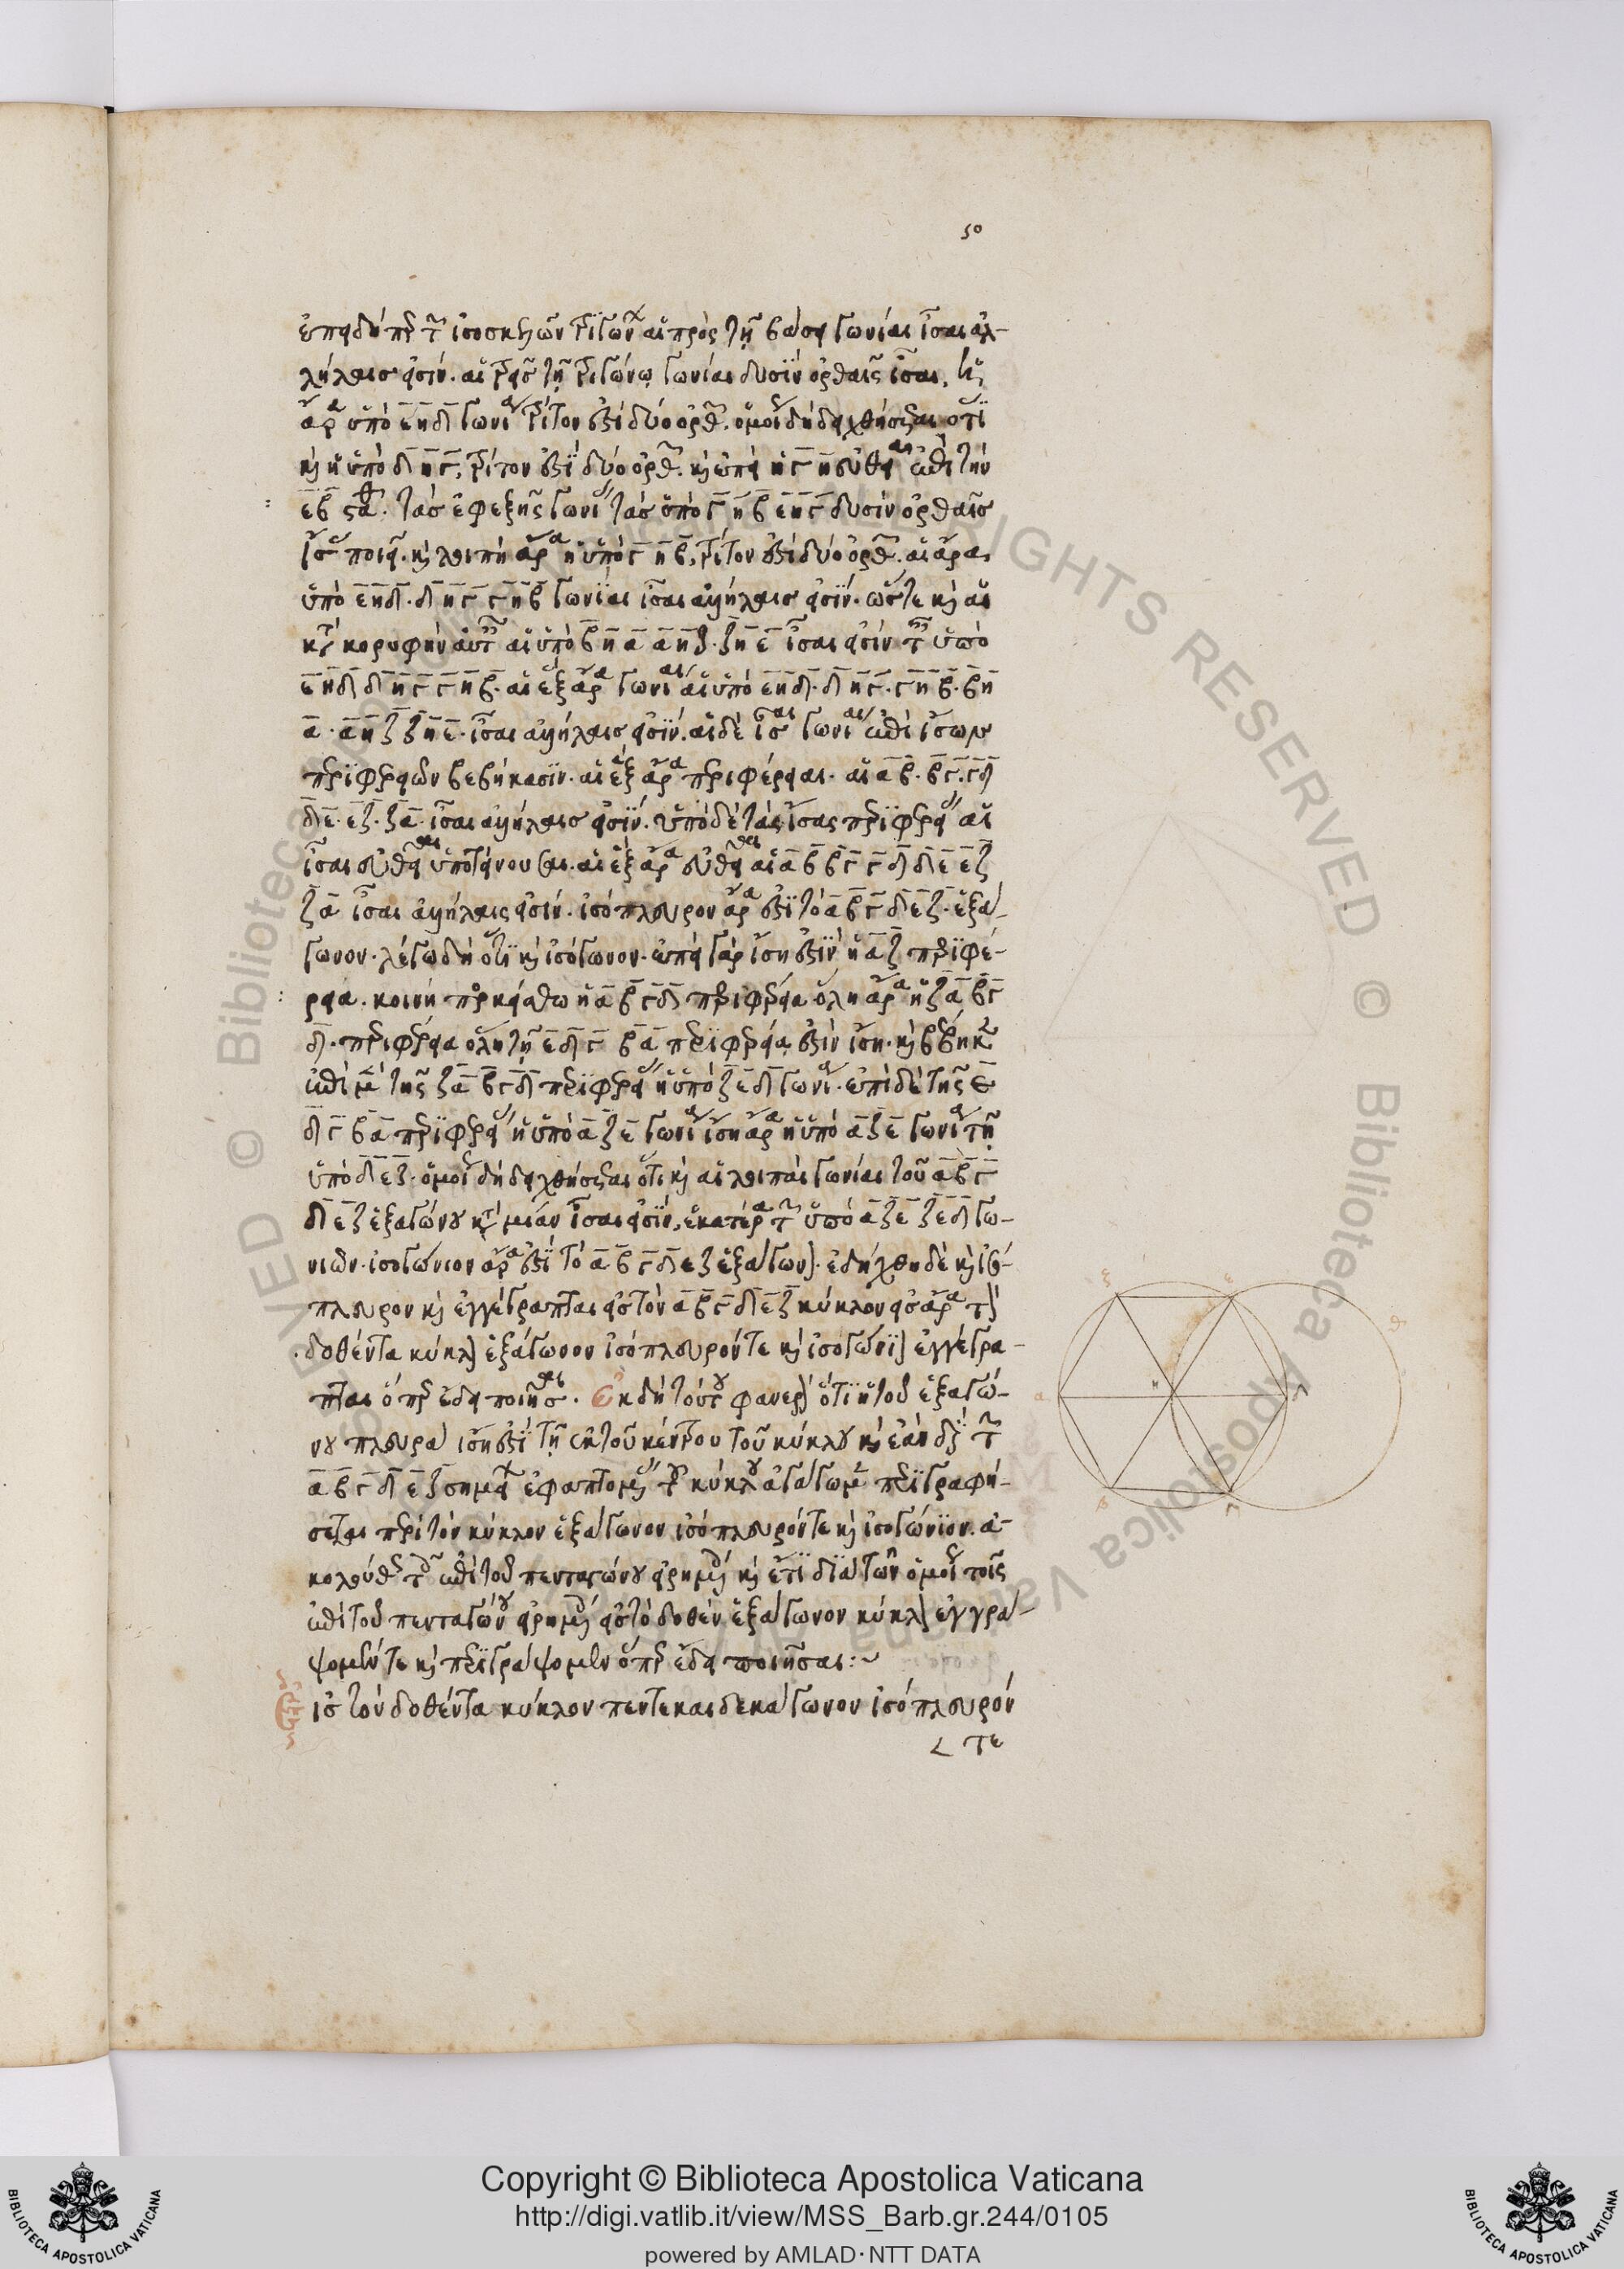 50
ἐπειδήπερ τῶν ἰσοσκελῶν τριγώνων αἱ πρὸς τῇ βάσει γωνίαι ἴσαι ἀλ-
λήλαις εἰσίν. αἱ τρεῖς τοῦ τριγώνου γωνίαι δυσὶν ὀρθαῖς ἴσαι,
ἄρα ὑπὸ εηδ γωνία τρίτον ἐστὶ δύο ὀρθῶν. ὁμοίως δὴ δειχθήσεται ὅτι
καὶ ἡ ὑπὸ δηγ, τρίτον ἐστὶ δύο ὀρθῶν. καὶ ἐπεὶ ἡ γη εὐθεῖα ἐπὶ τὴν
εβ σταθεῖσα. τὰς ἐφεξῆς γωνίας τὰς ὑπὸ γηβ εηγ δυσὶν ὀρθαῖς
ἴσας ποιεῖ. καὶ λοιπὴ ἄρα ἡ ὑπὸ γηβ, τρίτον ἐστὶ δύο ὀρθῶν. αἱ ἄρα
ὑπὸ εηδ. δηγ γηβ γωνίαι ἴσαι ἀλλήλαις εἰσίν. ὥστε καὶ αἱ
κατὰ κορυφὴν αὐταῖς αἱ ὑπὸ βηα αηζ. ζηε ἴσαι εἰσὶν ταῖς ὑπὸ
εηδ δηγ γηβ. αἱ ἓξ ἄρα γωνίαι αἱ ὑπὸ εηδ. δηγ. γηβ. βη
α. αηζ ζηε. ἴσαι ἀλλήλαις εἰσίν. αἱ δὲ ἴσαι γωνίαι ἐπὶ ἴσων
περιφερειῶν βεβήκασιν. αἱ ἓξ ἄρα περιφέρειαι. αἱ αβ. βγ. γδ
δε. εζ. ζα. ἴσαι ἀλλήλαις εἰσίν. ὑπὸ δὲ τὰς ἴσας περιφερείας αἱ
ἴσαι εὐθεῖαι ὑποτείνουσαι. αἱ ἓξ ἄρα εὐθεῖαι αἱ αβ βγ γδ δε εζ
ζα ἴσαι ἀλλήλαις εἰσίν. ἰσόπλευρον ἄρα ἐστὶ τὸ αβγδεζ. ἑξά-
γωνον. λέγω δὴ ὅτι καὶ ἰσόγωνον. ἐπεὶ γὰρ ἴση ἐστὶν ἡ αζ περιφέ-
ρεια. κοινὴ προσκείσθω ἡ αβγδ περιφέρεια ὅλη ἄρα ἡ ζαβγ
δ. περιφέρεια ὅλῃ τῇ εδγβα περιφερείᾳ ἐστὶν ἴση. καὶ βέβηκεν
ἐπὶ μὲν τῆς ζαβγδ περιφερείας ἡ ὑπὸ ζεδ γωνία. ἐπὶ δὲ τῆς ε
δγβα περιφερείας ἡ ὑπὸ αζε γωνία ἴση ἄρα ἡ ὑπὸ αζε γωνία τῇ
ὑπὸ δεζ. ὁμοίως δὴ δειχθήσεται ὅτι καὶ αἱ λοιπαὶ γωνίαι τοῦ αβγ
δεζ ἑξαγώνου κατὰ μίαν ἴσαι εἰσίν, ἑκατέρα τῶν ὑπὸ αζε ζεδ γω-
νιῶν. ἰσογώνιον ἄρα ἐστὶ τὸ αβγδεζ ἑξάγωνον. ἐδείχθη δὲ καὶ ἰσό-
πλευρον καὶ ἐγγέγραπται εἰς τὸν αβγδεζ κύκλον εἰς ἄρα τὸν
δοθέντα κύκλον ἑξάγωνον ἰσόπλευρόν τε καὶ ἰσογώνιον ἐγγέγρα-
πται ὅπερ ἔδει ποιῆσαι. Ἐκ δὴ τούτου φανερὸν ὅτι ἡ τοῦ ἑξαγώ-
νου πλευρὰ ἴση ἐστὶ τῇ ἐκ τοῦ κέντρου τοῦ κύκλου καὶ ἐὰν διὰ τῶν
αβγδεζ σημείων ἐφαπτομένας τοῦ κύκλου ἀγάγωμεν περιγραφή-
σεται περὶ τὸν κύκλον ἑξάγωνον ἰσόπλευρόν τε καὶ ἰσογώνιον. ἀ-
κολούθως τοῖς ἐπὶ τοῦ πενταγώνου εἰρημένοις καὶ ἔτι διὰ τῶν ὁμοίων τοῖς
ἐπὶ τοῦ πενταγώνου εἰρημένοις εἰς τὸ δοθὲν ἑξάγωνον κύκλον ἐγγρά-
ψομέν τε καὶ περιγράψομεν ὅπερ ἔδει ποιῆσαι:~
ἰς τὸν δοθέντα κύκλον πεντεκαιδεκάγωνον ἰσόπλευρόν
τε
ζ ε
α η
β γ
Copyright © Biblioteca Apostolica Vaticana
http://digi.vatlib.it/view/MSS_Barb.gr.244/0105
powered by AMLAD·NTT DATA
BIBLIOTECA APOSTOLICA VATICANA
BIBLIOTECA APOSTOLICA VATICANA